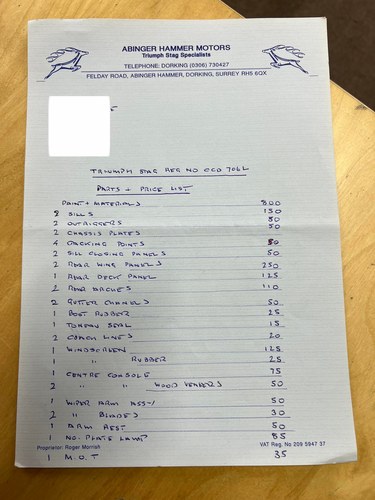 ABINGER HAMMER MOTORS
Triumph Stag Specialists
TELEPHONE: DORKING (0306) 730427
FELDAY ROAD, ABINGER HAMMER, DORKING, SURREY RH5 6QX
TRIUMPH STAG REG NO 706L
PARTS + PRICE LIST
PAINT + MATERIALS 800
2 SILLS 130
2 OUTRIGGERS 80
2 CHASSIS PLATES 30
4 JACKING POINTS 80
2 SILL CLOSING PANELS 50
2 REAR WING PANELS 250
1 REAR DECK PANEL 125
2 REAR ARCHES 110
2 GUTTER CHANNELS 50
1 BOOT RUBBER 25
1 TONEAU SEAL 15
2 COACH LINES 20
1 WINDSCREEN 125
1 " RUBBER 25
1 CENTRE CONSOLE 75
2 " " WOOD VENEERS 50
1 WIPER ARM ASS-Y 50
2 " BLADES 30
1 ARM REST 50
1 NO. PLATE LAMP 85
Proprietor: Roger Morrish VAT Reg. No 209 5947 37
1 M.O.T 35